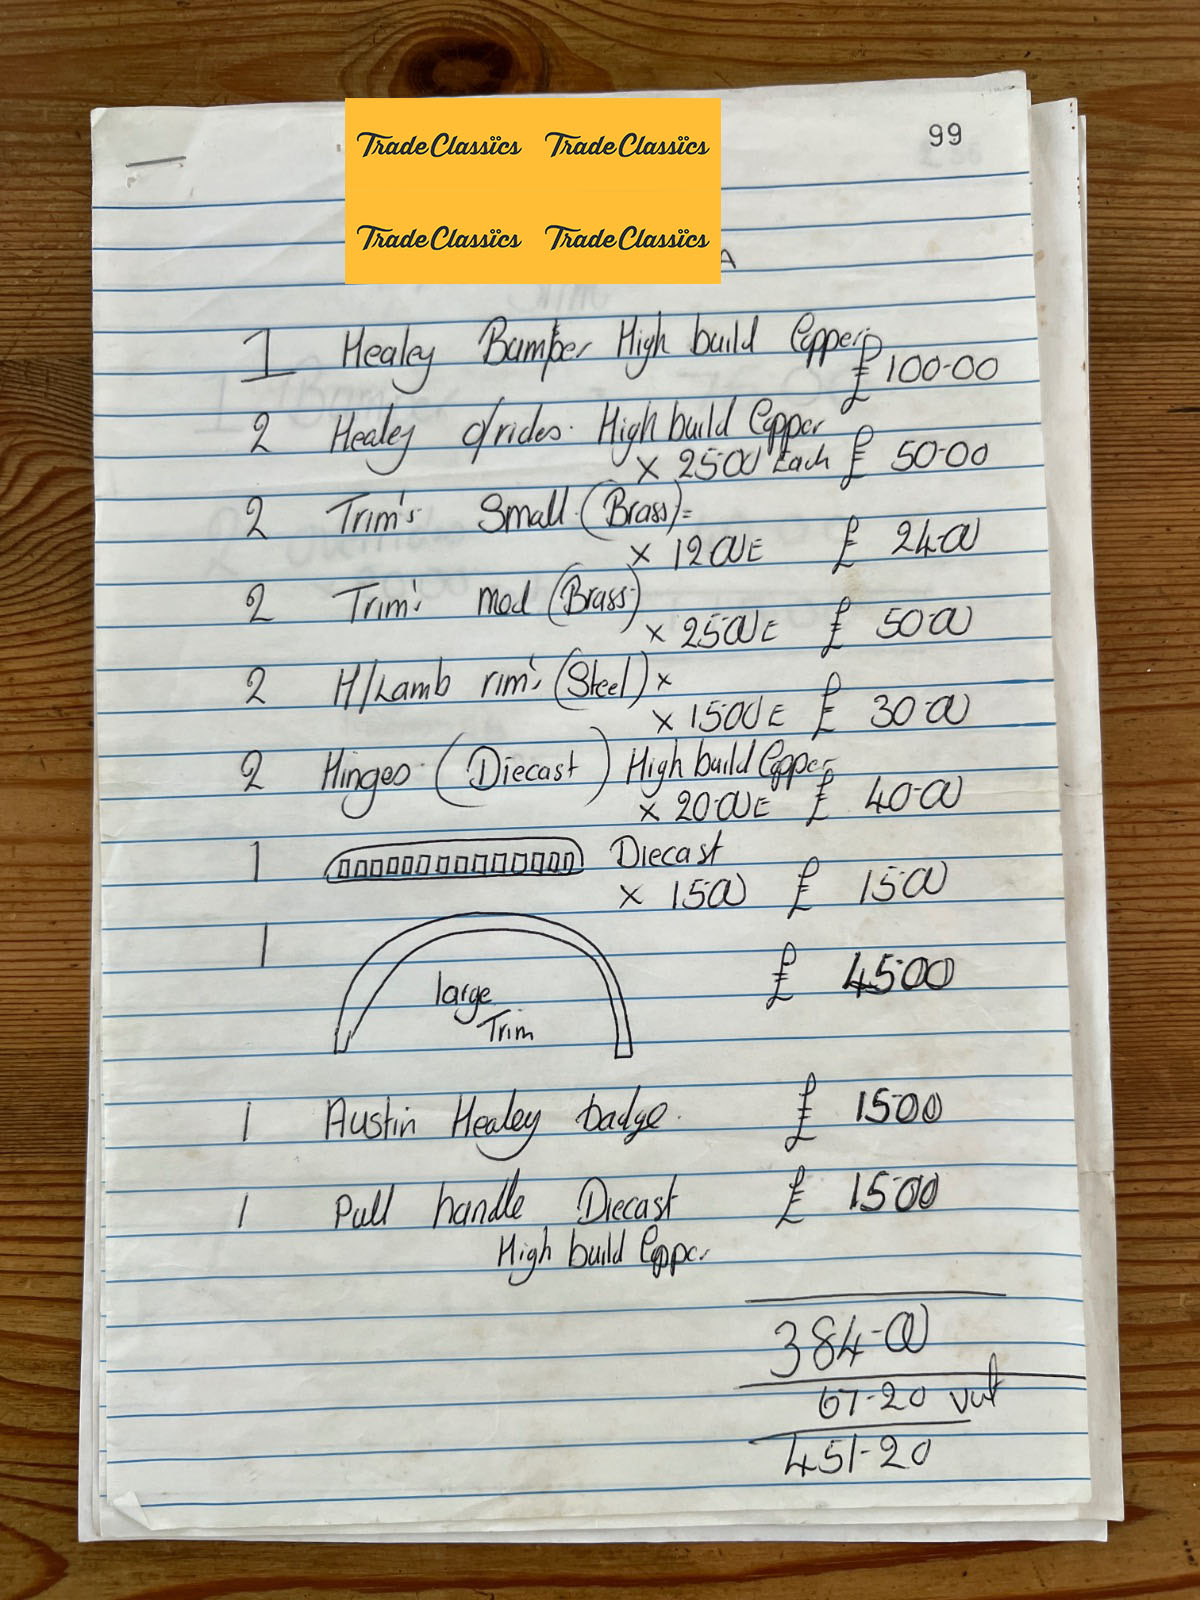 TradeClassics TradeClassics
TradeClassics TradeClassics
99
A
1 Healey Bumper High build Copper £ 100-00
2 Healey o/rides. High build Copper
x 25-00 Each £ 50-00
2 Trim's Small (Brass) =
x 12-00 E £ 24-00
2 Trim's med (Brass)
x 25-00 E £ 50-00
2 H/Lamb rim's (Steel) x
x 15-00 E £ 30-00
2 Hinges (Diecast) High build Copper
x 20-00 E £ 40-00
1 Diecast
x 15-00 £ 15-00
1 £ 45-00
large
Trim
1 Austin Healey badge. £ 15-00
1 Pull handle Diecast £ 15-00
High build Copper
384-00
67-20 vat
451-20